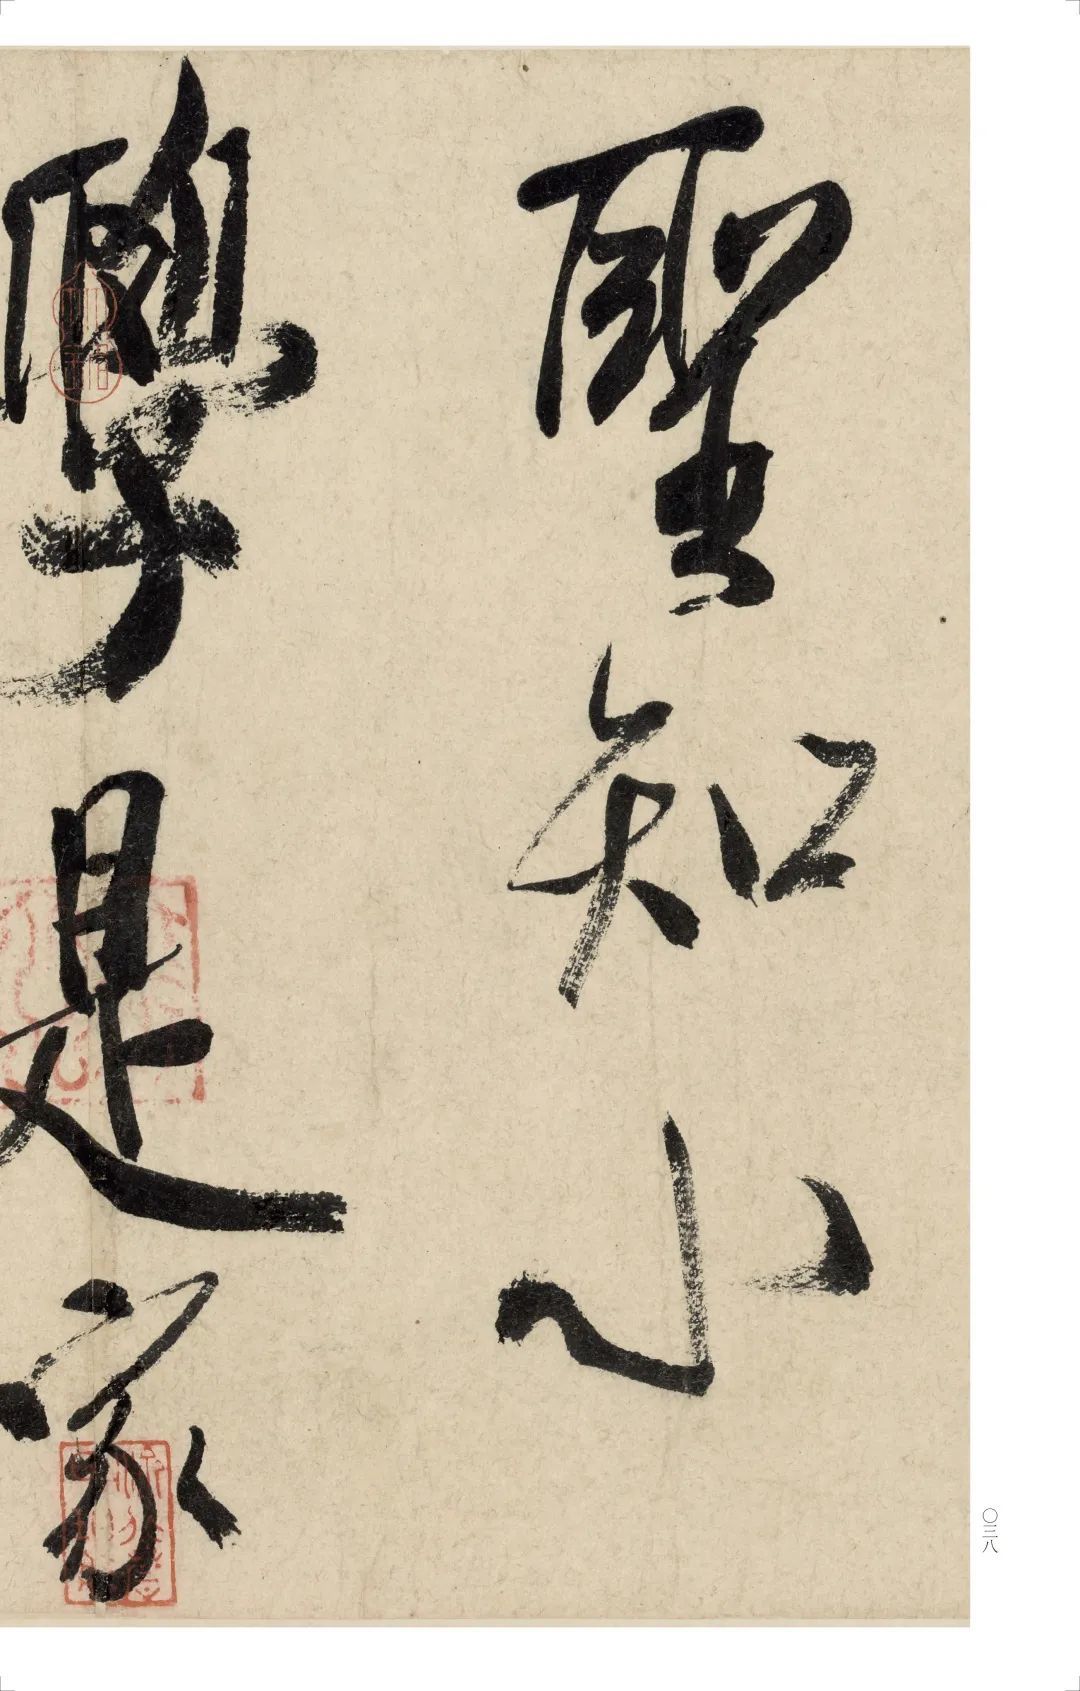 聖知小
學是家
〇三八